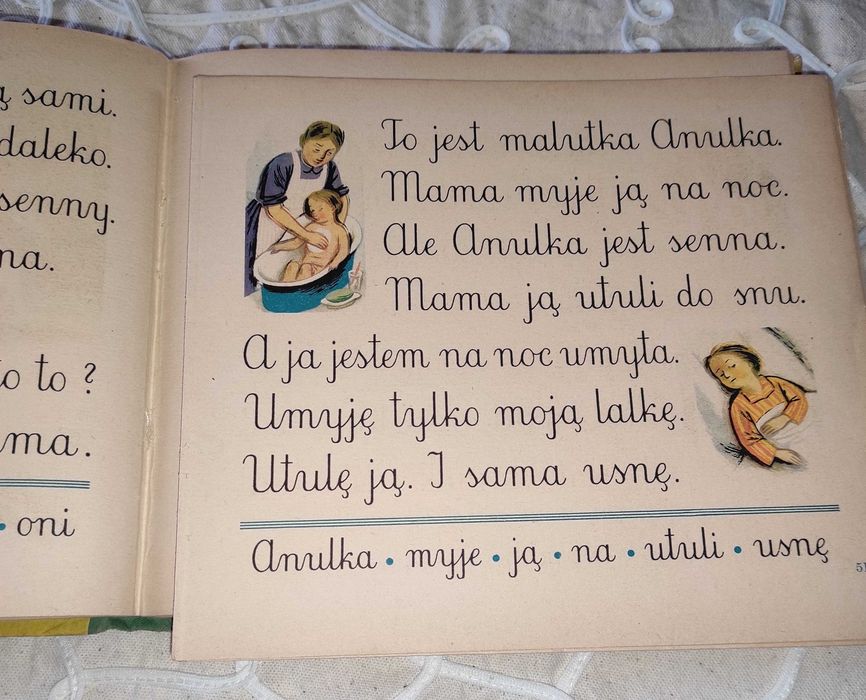 ą sami.
daleko.
senny.
na.
to to ?
ma.
• oni
To jest malutka Anulka.
Mama myje ją na noc.
Ale Anulka jest senna.
Mama ją utuli do snu.
A ja jestem na noc umyta.
Umyję tylko moją lalkę.
Utulę ją. I sama usnę.
Anulka • myje • ją • na • utuli • usnę
51